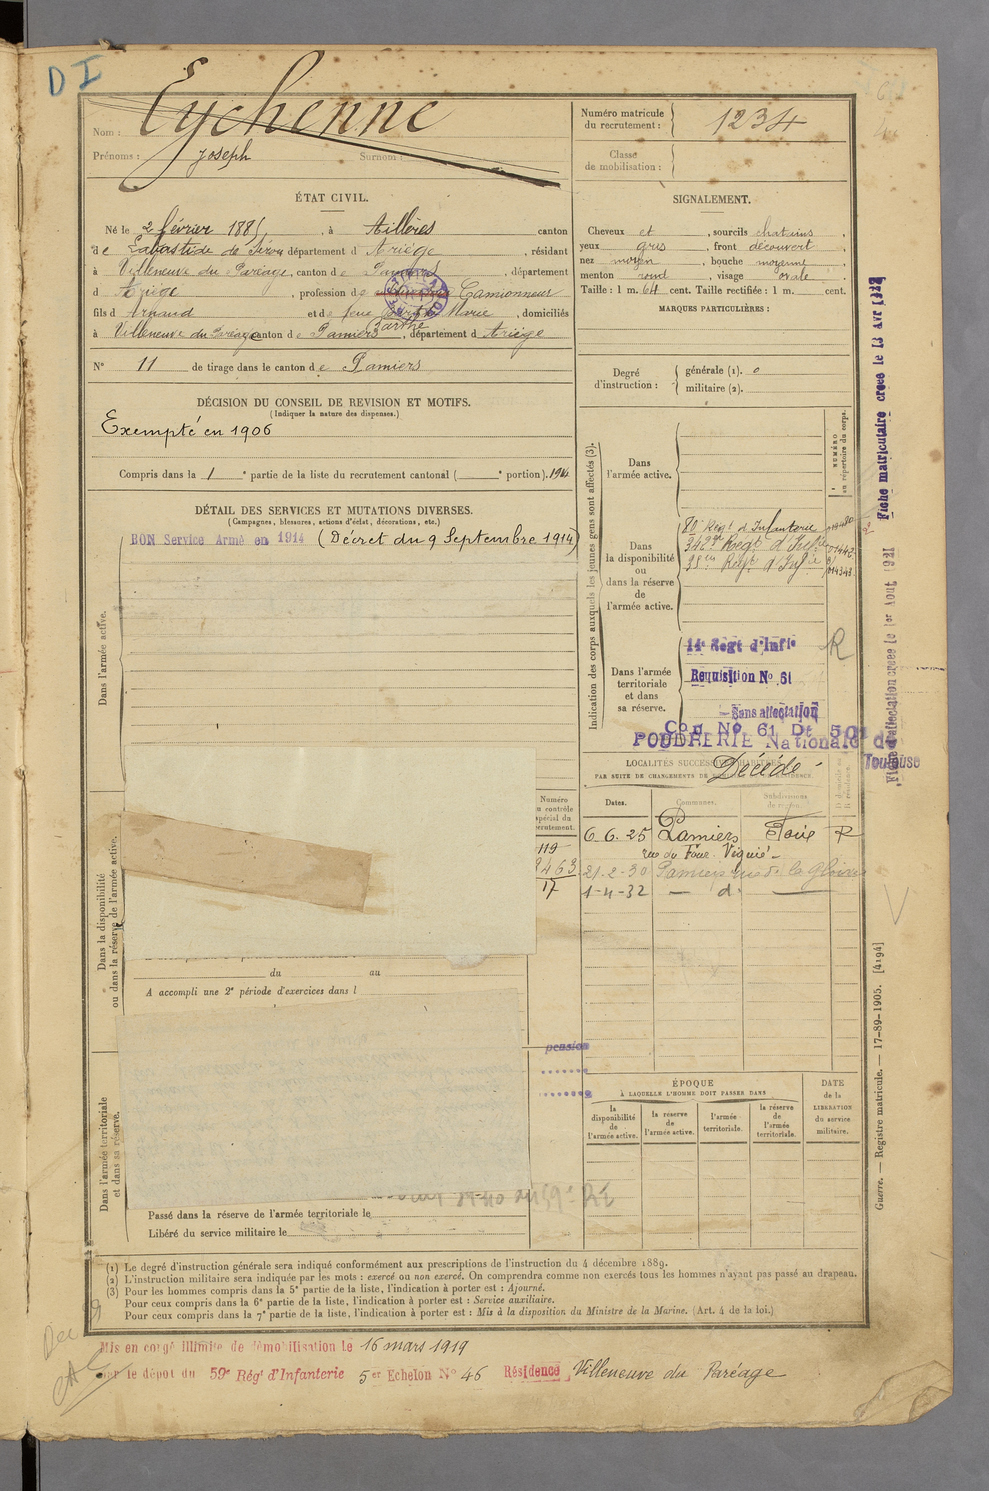 D I
Nom : Eychenne
Prénoms : Joseph Surnom :
ÉTAT CIVIL.
Né le 2 février 1885, à Aillères canton
de Labastide de Sérou département d Ariège, résidant
à Villeneuve du Paréage, canton de Pamiers, département
d Ariège, profession de Camionneur
fils d Arnaud et de feue Marie, domiciliés
Barthe
à Villeneuve du Paréage canton de Pamiers, département d Ariège
N° 11 de tirage dans le canton de Pamiers
DÉCISION DU CONSEIL DE REVISION ET MOTIFS.
(Indiquer la nature des dispenses.)
Exempté en 1906
Compris dans la 1 e partie de la liste du recrutement cantonal ( e portion). 1914
DÉTAIL DES SERVICES ET MUTATIONS DIVERSES.
(Campagnes, blessures, actions d'éclat, décorations, etc.)
BON Service Armé en 1914 (Décret du 9 Septembre 1914)
Dans l'armée active.
Dans la disponibilité
ou dans la réserve de l'armée active.
du au
A accompli une 2e période d'exercices dans l
Dans l'armée territoriale
et dans sa réserve.
Passé dans la réserve de l'armée territoriale le
Libéré du service militaire le
Numéro
du contrôle
spécial du
recrutement.
119
17
pension
Numéro matricule
du recrutement : 1234
Classe
de mobilisation :
SIGNALEMENT.
Cheveux et , sourcils chatains ,
yeux gris , front découvert ,
nez moyen , bouche moyenne ,
menton rond , visage ovale .
Taille : 1 m. 64 cent. Taille rectifiée : 1 m. cent.
MARQUES PARTICULIÈRES :
Degré
d'instruction :
générale (1). 0
militaire (2).
Indication des corps auxquels les jeunes gens sont affectés (3).
NUMÉRO
au répertoire du corps.
Dans
l'armée active.
Dans
la disponibilité
ou
dans la réserve
de
l'armée active.
80e Régt d'Infanterie
342e Régt d'Inf
35em Régt d'Infie
Dans l'armée
territoriale
et dans
sa réserve.
14e Regt d'Infie R
Requisition No 61
Sans affectation
Con No 61 Dt 501
POUDRERIE Nationale de
Toulouse
LOCALITÉS SUCCESSIVES HABITÉES
PAR SUITE DE CHANGEMENTS DE DOMICILE OU RÉSIDENCE
Décédé
Dates. Communes. Subdivisions
de région.
D domicile ou
R résidence.
6.6.25 Pamiers Foix R
rue du Four Viguié
21-2-30 Pamiers rue de la Gloire
1-4-32 — d° —
ÉPOQUE
À LAQUELLE L'HOMME DOIT PASSER DANS
la
disponibilité
de
l'armée active.
la réserve
de
l'armée active.
l'armée
territoriale.
la réserve
de
l'armée
territoriale.
DATE
de la
LIBÉRATION
du service
militaire.
Fiche matriculaire creee le 13 Avr
Fiche d'affectation creee le 1er Aout 1921
Guerre. — Registre matricule. — 17-89-1905. [4194]
(1) Le degré d'instruction générale sera indiqué conformément aux prescriptions de l'instruction du 4 décembre 1889.
(2) L'instruction militaire sera indiquée par les mots : exercé ou non exercé. On comprendra comme non exercés tous les hommes n'ayant pas passé au drapeau.
(3) Pour les hommes compris dans la 5e partie de la liste, l'indication à porter est : Ajourné.
Pour ceux compris dans la 6e partie de la liste, l'indication à porter est : Service auxiliaire.
Pour ceux compris dans la 7e partie de la liste, l'indication à porter est : Mis à la disposition du Ministre de la Marine. (Art. 4 de la loi.)
Mis en congé illimité de démobilisation le 16 mars 1919
par le dépôt du 59e Régt d'Infanterie 5er Echelon No 46 Résidence Villeneuve du Paréage